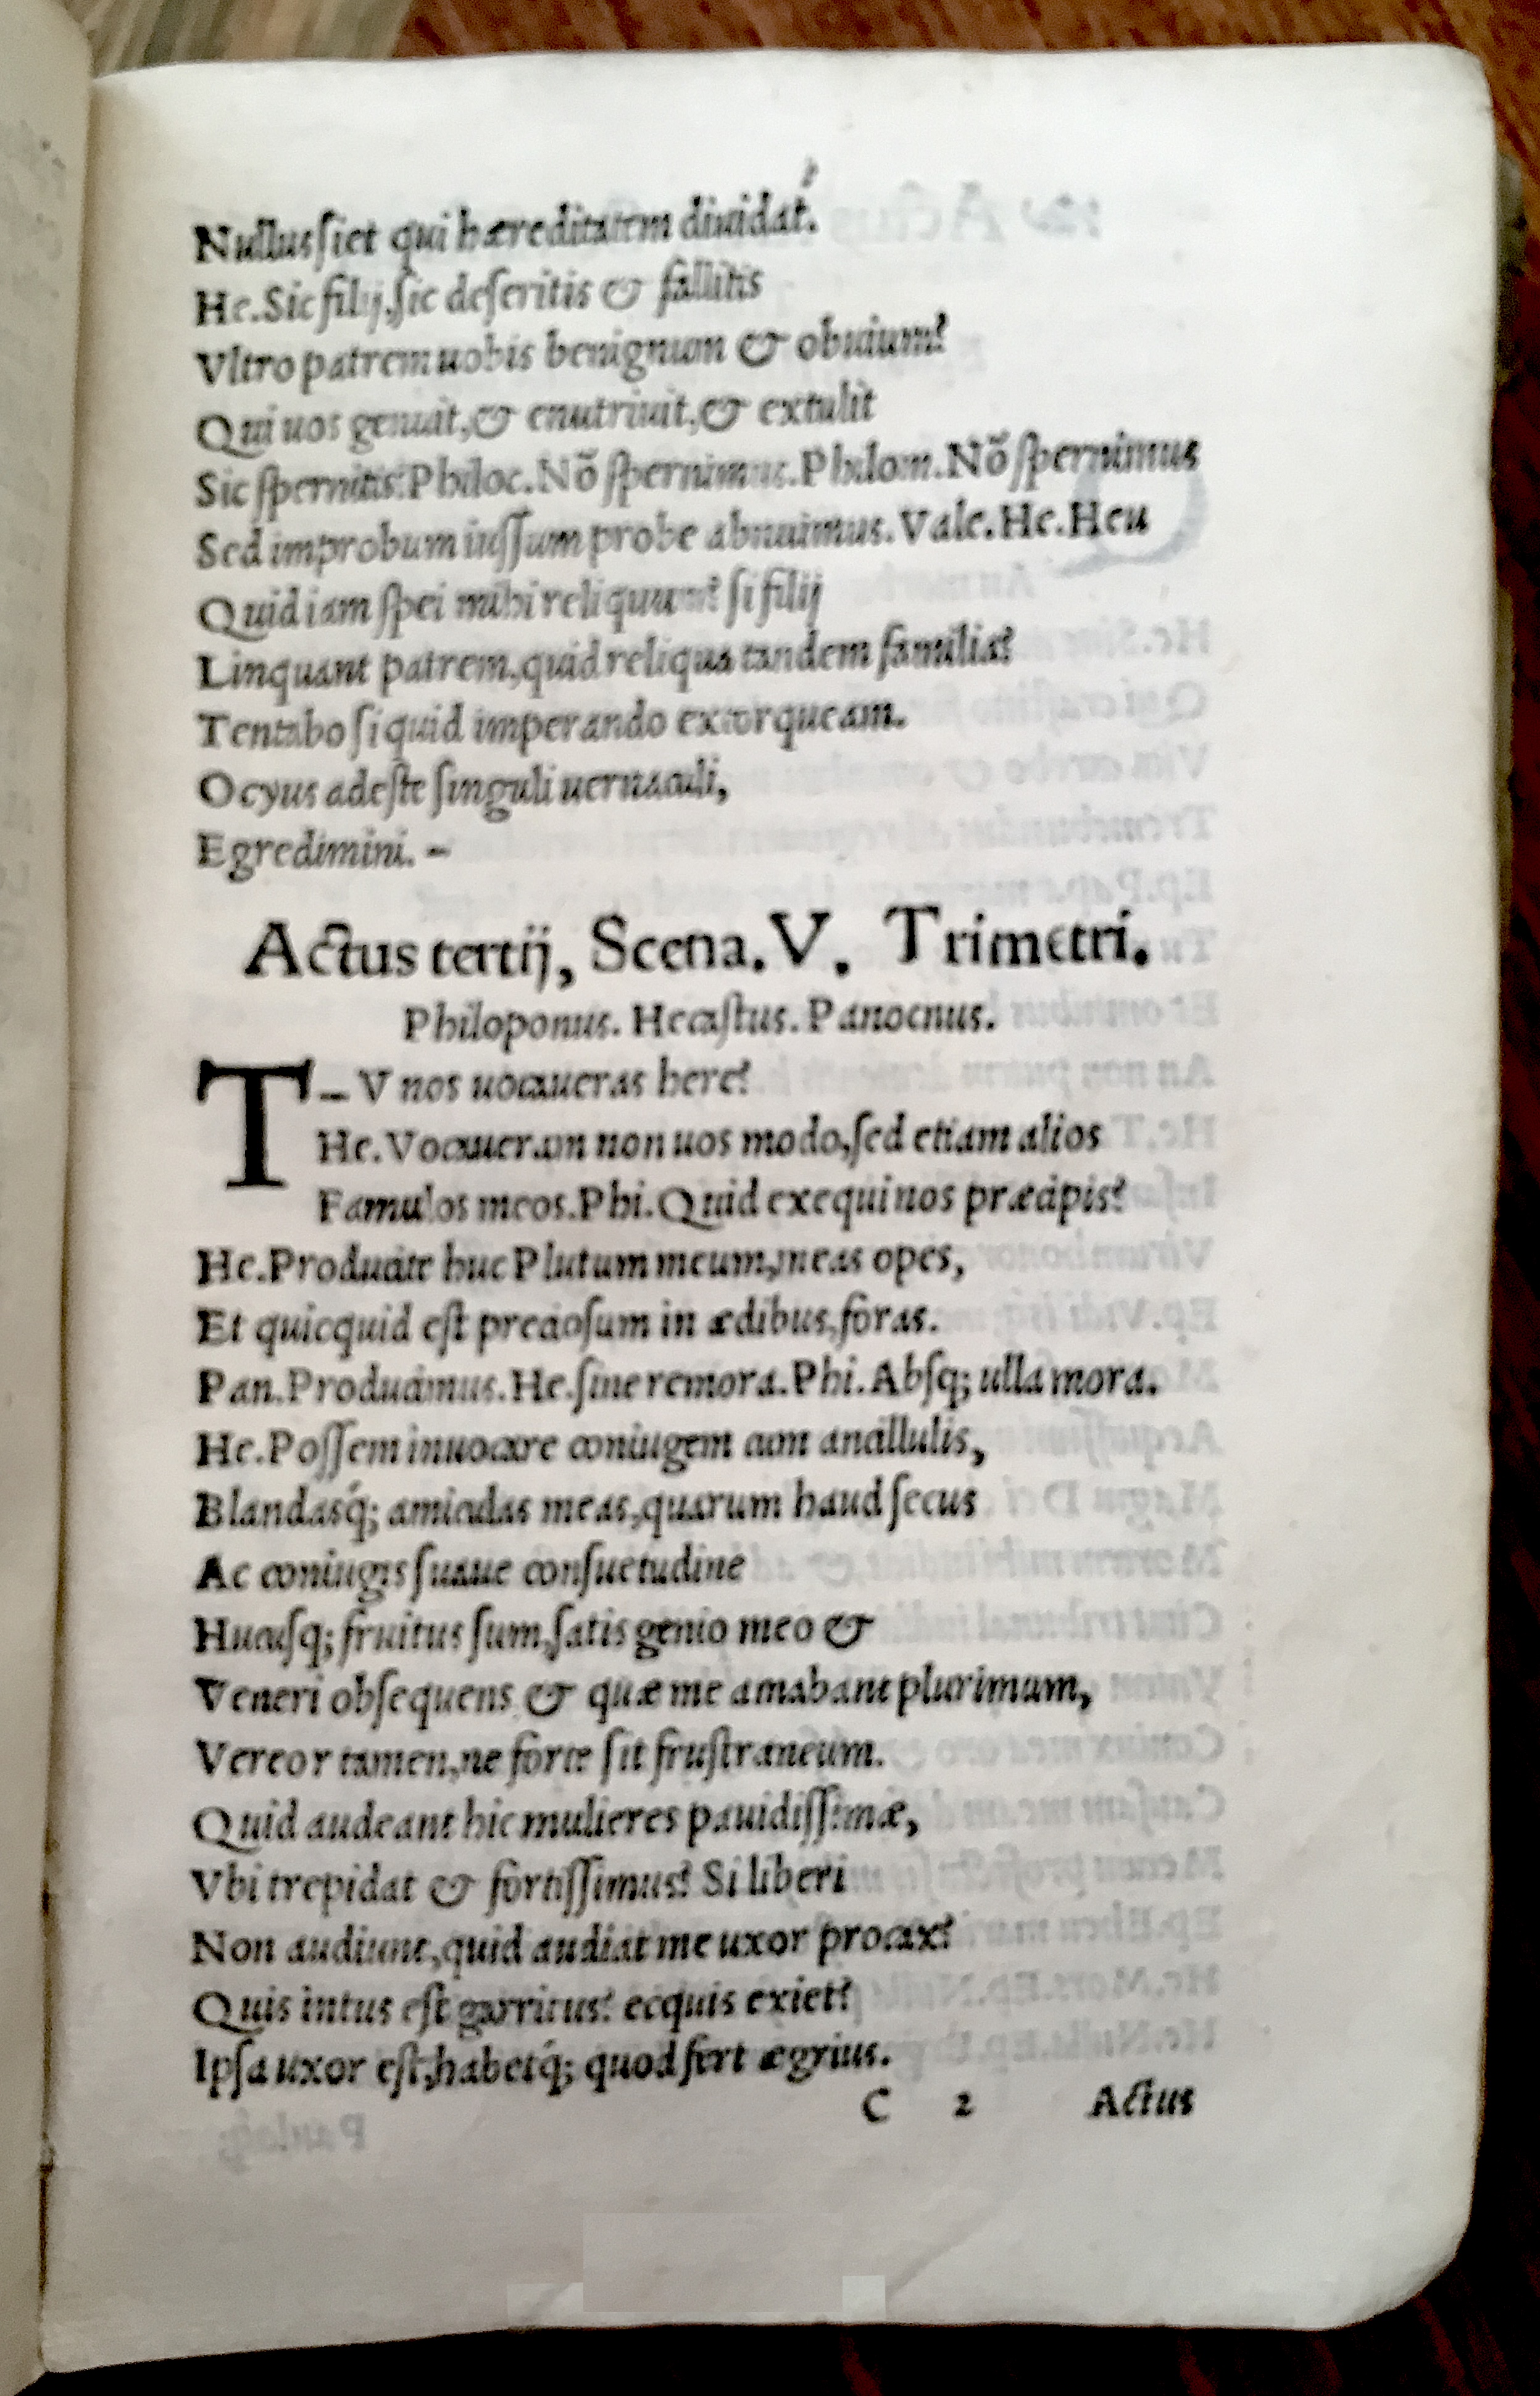 Nullus ſiet qui hæreditatem diuidat.
He. Sic filij, ſic deſeritis & fallitis
Vltro patrem uobis benignum & obuium?
Qui uos genuit, & enutriuit, & extulit
Sic ſpernitis? Philoc. Nõ ſpernimus. Philom. Nõ ſpernimus
Sed improbum iuſſum probe abnuimus. Vale. He. Heu
Quid iam ſpei mihi reliquum? ſi filij
Linquant patrem, quid reliqua tandem familia?
Tentabo ſi quid imperando extorqueam.
Ocyus adeſte ſinguli uernaculi,
Egredimini. –
Actus tertij, Scena. V. Trimetri.
Philoponus. Hecaſtus. Panocnus.
T– V nos uocaueras here?
He. Vocaueram non uos modo, ſed etiam alios
Famulos meos. Phi. Quid exequi nos præcipis?
He. Producite huc Plutum meum, meas opes,
Et quicquid eſt precioſum in ædibus, foras.
Pan. Producimus. He. ſine remora. Phi. Abſq; ulla mora.
He. Poſſem inuocare coniugem cum ancillulis,
Blandasq́; amiculas meas, quarum haud ſecus
Ac coniugis ſuaue conſuetudine
Hucuſq; fruitus ſum, ſatis genio meo &
Veneri obſequens & quæ me amabant plurimum,
Vereor tamen, ne forte ſit fruſtraneum.
Quid audeant hic mulieres pauidiſſimæ,
Vbi trepidat & fortiſſimus? Si liberi
Non audiunt, quid audiat me uxor procax?
Quis intus eſt garritus? ecquis exiet?
Ipſa uxor eſt, habetq́; quod fert ægrius.
C 2 Actus